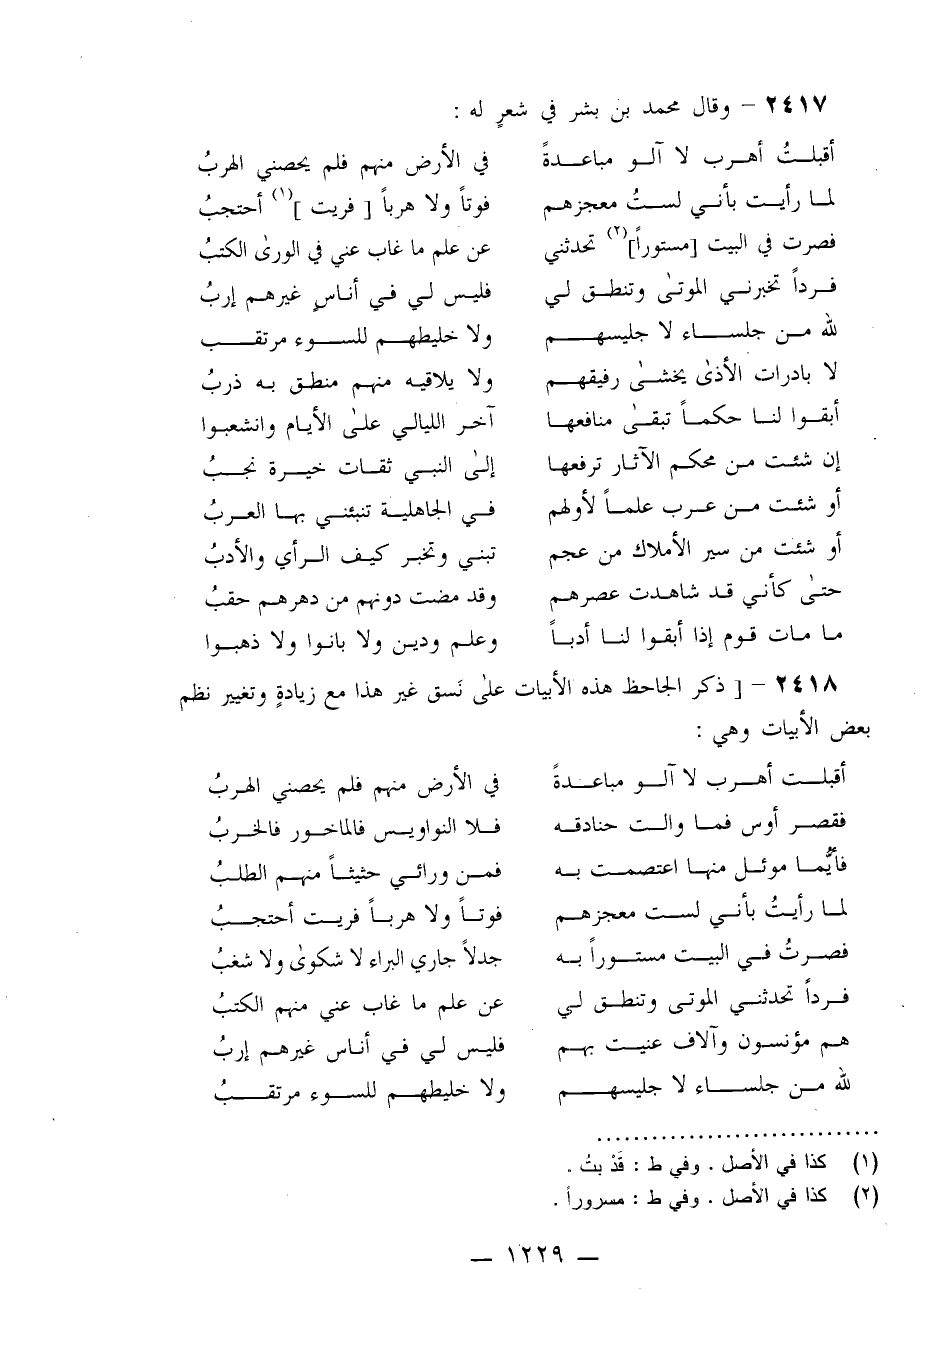 ٢٤١٧ – وقال محمد بن بشر في شعرٍ له :
أقبلتُ أهرب لا آلو مباعدةً في الأرض منهم فلم يحصني الهربُ
لما رأيت بأني لستُ معجزهم فوتاً ولا هرباً [ فريت ](١) أحتجبُ
فصرت في البيت [مستوراً](٢) تحدثني عن علم ما غاب عني في الورىٰ الكتبُ
فرداً تخبرني الموتىٰ وتنطق لي فليس لي في أناسٍ غيرهم إربُ
لله من جلساء لا جليسهم ولا خليطهم للسوء مرتقبُ
لا بادرات الأذىٰ يخشىٰ رفيقهم ولا يلاقيه منهم منطق به ذربُ
أبقوا لنا حكماً تبقىٰ منافعها آخر الليالي علىٰ الأيام وانشعبوا
إن شئت من محكم الآثار ترفعها إلىٰ النبي ثقات خيرة نجبُ
أو شئت من عرب علماً لأولهم في الجاهلية تنبئني بها العربُ
أو شئت من سير الأملاك من عجم تبني وتخبر كيف الرأي والأدبُ
حتىٰ كأني قد شاهدت عصرهم وقد مضت دونهم من دهرهم حقبُ
ما مات قوم إذا أبقوا لنا أدباً وعلم ودين ولا بانوا ولا ذهبوا
٢٤١٨ – [ ذكر الجاحظ هذه الأبيات علىٰ نَسق غير هذا مع زيادةٍ وتغيير نظم
بعض الأبيات وهي :
أقبلت أهرب لا آلو مباعدةً في الأرض منهم فلم يحصني الهربُ
فقصر أوس فما والت حنادقه فلا النواويس فالماخور فالخربُ
فأيُّما موئل منها اعتصمت به فمن ورائي حثيثاً منهم الطلبُ
لما رأيتُ بأني لست معجزهم فوتاً ولا هرباً فريت أحتجبُ
فصرتُ في البيت مستوراً به جدلاً جاري البراء لا شكوىٰ ولا شغبُ
فرداً تحدثني الموتىٰ وتنطق لي عن علم ما غاب عني منهم الكتبُ
هم مؤنسون وآلاف عنيت بهم فليس لي في أناس غيرهم إربُ
لله من جلساء لا جليسهم ولا خليطهم للسوء مرتقبُ
(١) كذا في الأصل . وفي ط : قَدْ بتُ .
(٢) كذا في الأصل . وفي ط : مسروراً .
– ١٢٢٩ –